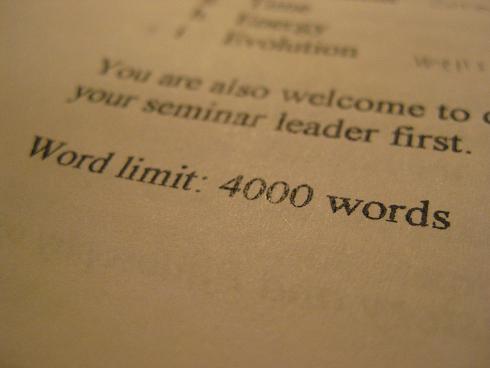 Time
h Energy
i Evolution
Wells
You are also welcome to
your seminar leader first.
Word limit: 4000 words